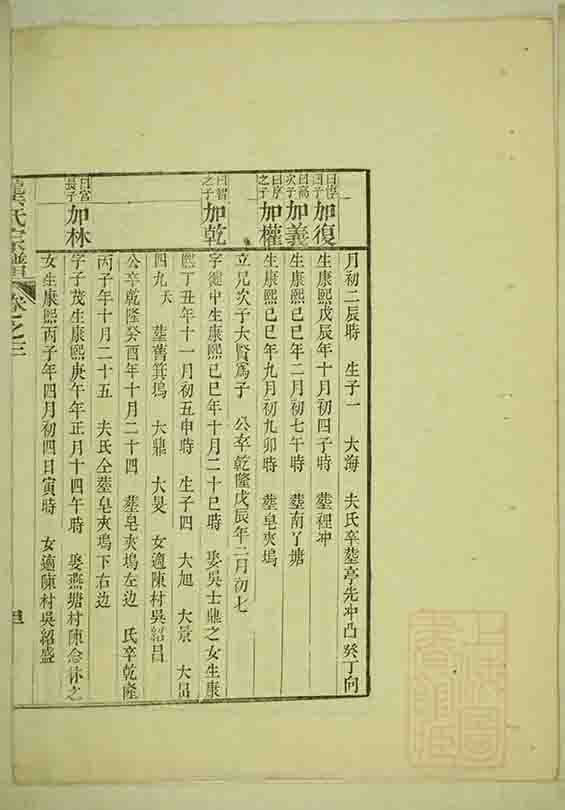 月初二辰時 生子一 大海 夫氏卒塟亭先冲凸癸丁向
曰惇 子 加復 生康熙戊辰年十月初四子時 塟裡冲
曰高次子 加義 生康熙己巳年二月初七午時 塟南丫塘
曰序之子 加權 生康熙己巳年九月初九卯時 塟皂夾塢
立兄次子大賢爲子 公卒乾隆戊辰年二月初七
曰智之子 加乾 字德中生康熙己巳年十月二十巳時 娶吳士鼎之女生康
熙丁丑年十一月初五申時 生子四 大旭 大景 大
四九 塟舊箕塢 大鼎 大旻 女適陳村吳紹昌
公卒乾隆癸酉年十月二十四 塟皂夾塢左边 氏卒乾隆
丙子年十月二十五 夫氏仝塟皂夾塢下右边
曰宮長子 加林 字子茂生康熙庚午年正月十四午時 娶燕塘村陳念休之
女生康熙丙子年四月初四日寅時 女適陳村吳紹盛
氏宗譜 卷之三